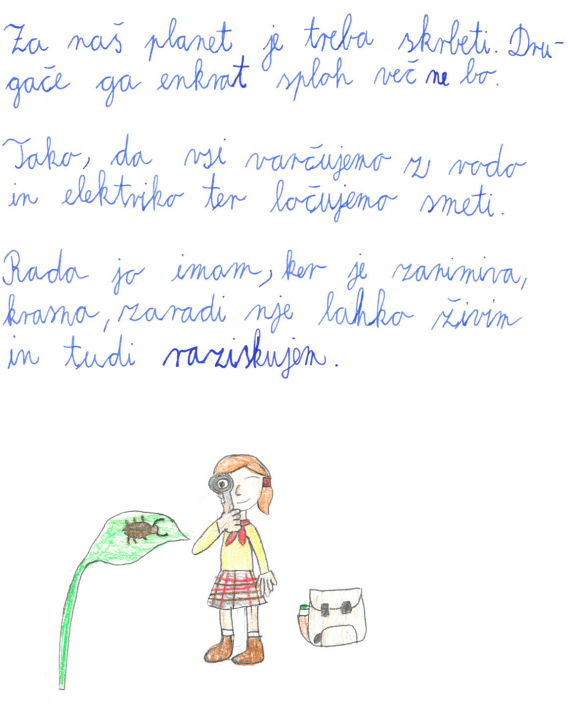 Za naš planet je treba skrbeti. Dru-
gače ga enkrat sploh več ne bo.
Tako, da vsi varčujemo z vodo
in elektriko ter ločujemo smeti.
Rada jo imam, ker je zanimiva,
krasna, zaradi nje lahko živim
in tudi raziskujem.